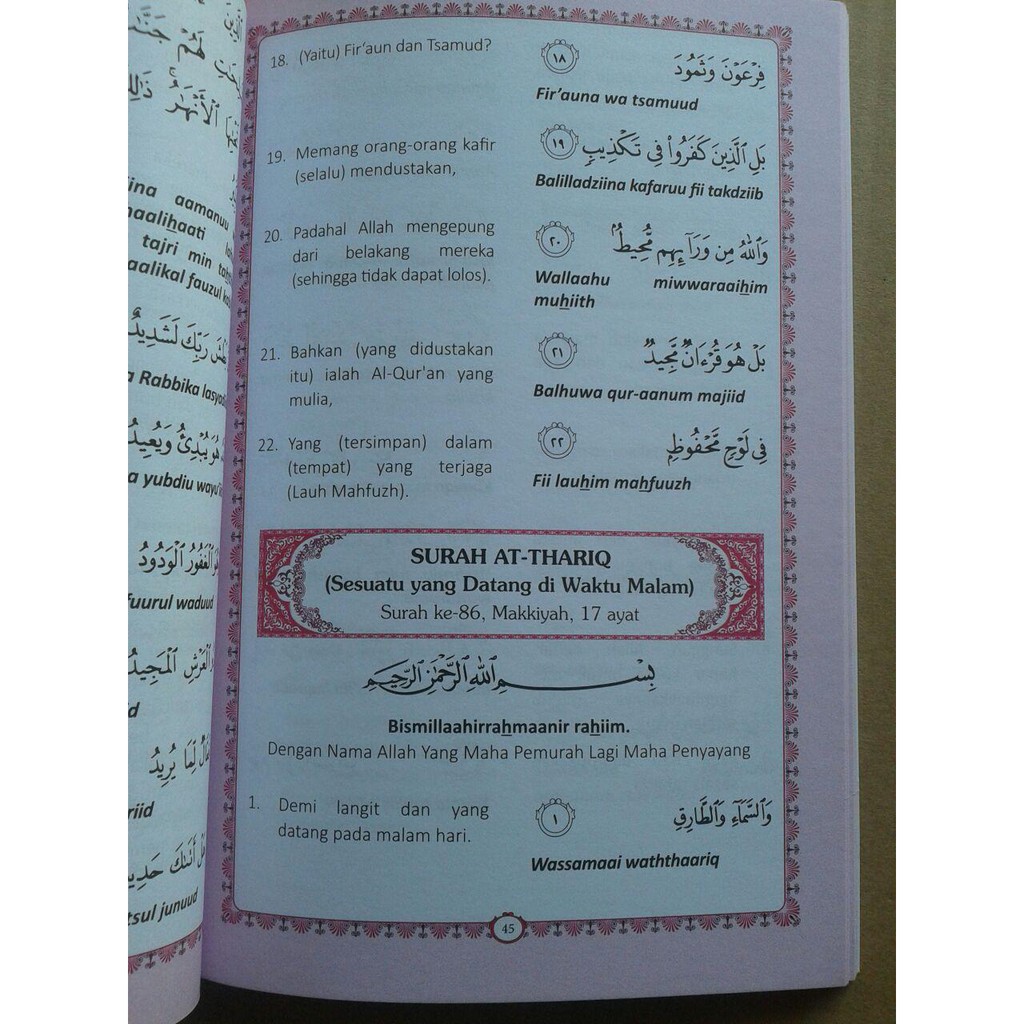 هُمْ جَنَّـ
ٱلْأَنْهَـٰرُ ۚ ذَٰلِكَ
iina aamanuu
tajri min
aalikal fauzul
رَبِّكَ لَشَدِيدٌ
a Rabbika
هُوَ يُبْدِئُ وَيُعِيدُ
a yubdiu
ٱلْغَفُورُ ٱلْوَدُودُ
fuurul waduud
ٱلْعَرْشِ ٱلْمَجِيدُ
d
لِّمَا يُرِيدُ
riid
أَتَىٰكَ
tsul junuud
18. (Yaitu) Fir'aun dan Tsamud?
فِرْعَوْنَ وَثَمُودَ ١٨
Fir'auna wa tsamuud
19. Memang orang-orang kafir
(selalu) mendustakan,
بَلِ ٱلَّذِينَ كَفَرُوا۟ فِى تَكْذِيبٍ ١٩
Balilladziina kafaruu fii takdziib
20. Padahal Allah mengepung
dari belakang mereka
(sehingga tidak dapat lolos).
وَٱللَّهُ مِن وَرَآئِهِم مُّحِيطٌۢ ٢٠
Wallaahu miwwaraaihim
muhiith
21. Bahkan (yang didustakan
itu) ialah Al-Qur'an yang
mulia,
بَلْ هُوَ قُرْءَانٌ مَّجِيدٌ ٢١
Balhuwa qur-aanum majiid
22. Yang (tersimpan) dalam
(tempat) yang terjaga
(Lauh Mahfuzh).
فِى لَوْحٍ مَّحْفُوظٍۭ ٢٢
Fii lauhim mahfuuzh
SURAH AT-THARIQ
(Sesuatu yang Datang di Waktu Malam)
Surah ke-86, Makkiyah, 17 ayat
بِسْمِ ٱللَّهِ ٱلرَّحْمَـٰنِ ٱلرَّحِيمِ
Bismillaahirrahmaanir rahiim.
Dengan Nama Allah Yang Maha Pemurah Lagi Maha Penyayang
1. Demi langit dan yang
datang pada malam hari.
وَٱلسَّمَآءِ وَٱلطَّارِقِ ١
Wassamaai waththaariq
45